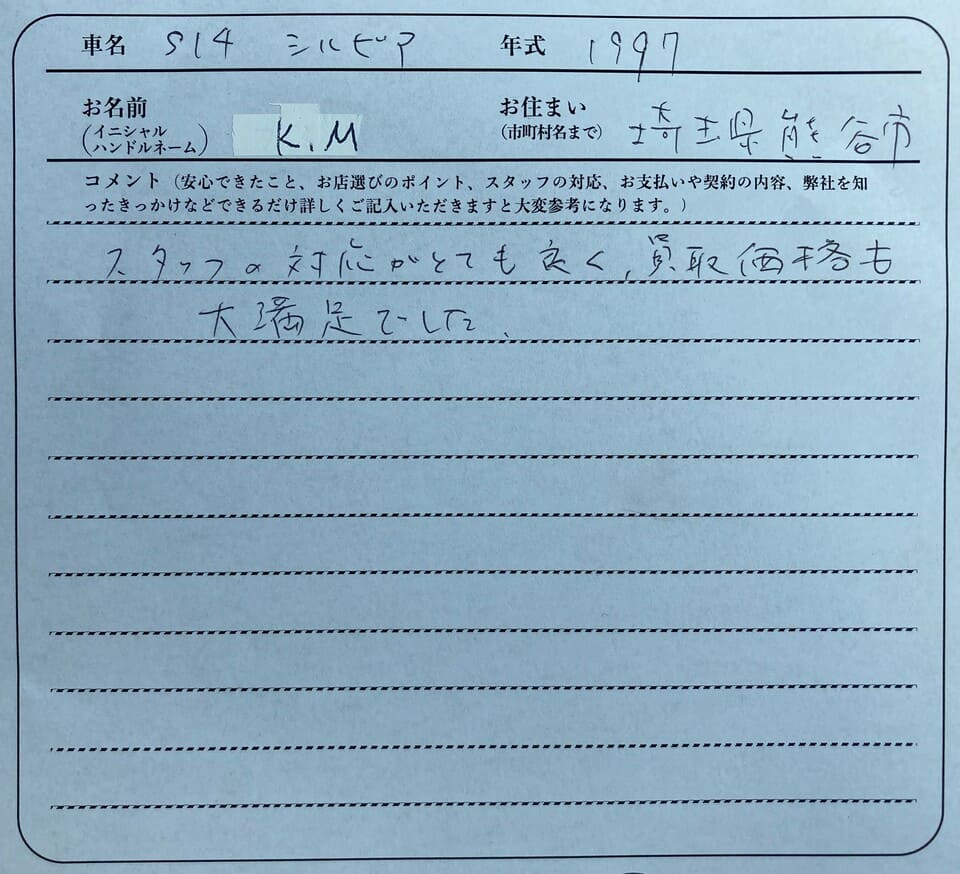 車名 S14 シルビア 年式 1997
お名前 (イニシャル ハンドルネーム) K.M お住まい (市町村名まで) 埼玉県熊谷市
コメント（安心できたこと、お店選びのポイント、スタッフの対応、お支払いや契約の内容、弊社を知
ったきっかけなどできるだけ詳しくご記入いただきますと大変参考になります。）
スタッフの対応がとても良く、買取価格も
大満足でした、